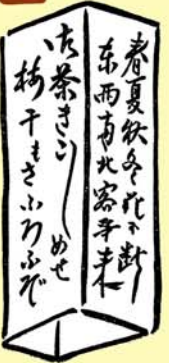 春夏秋冬花不断
東西南北客争来
御茶きこしめせ
梅干もさふらふぞ